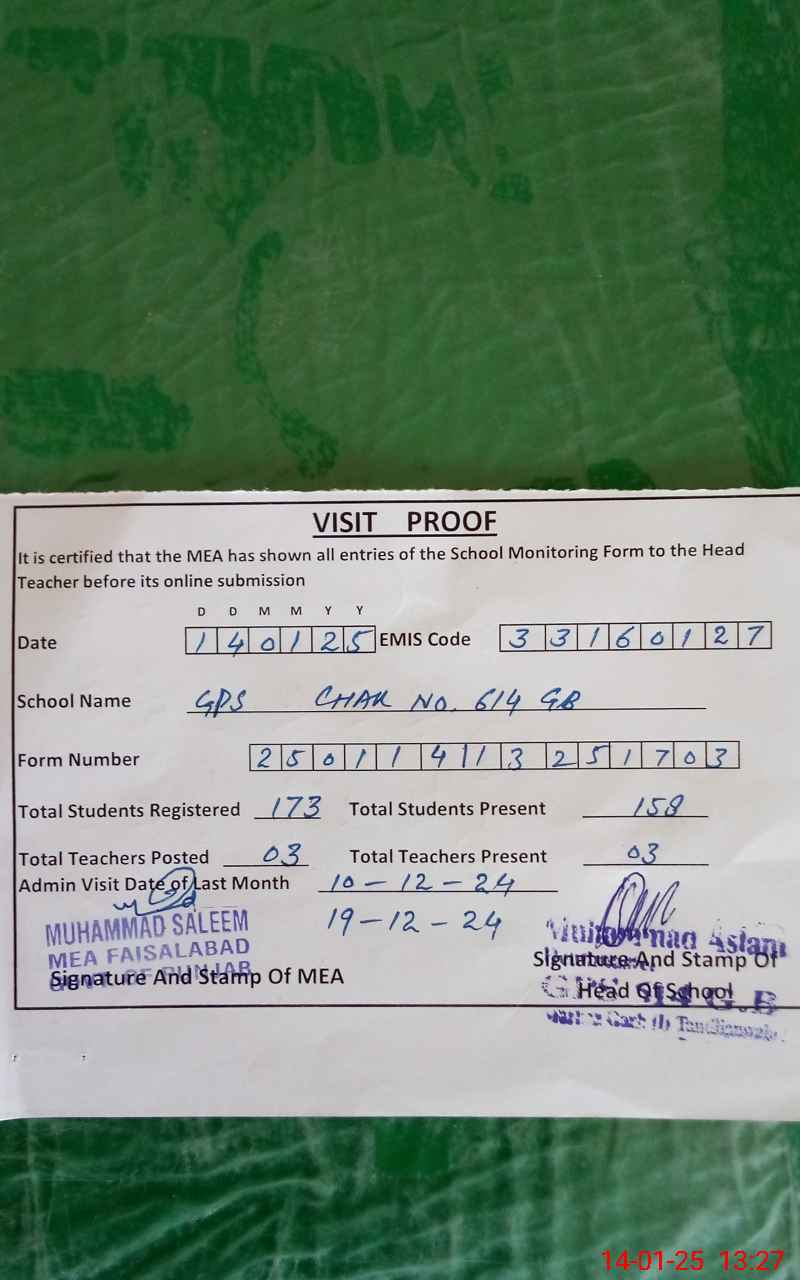 VISIT PROOF
It is certified that the MEA has shown all entries of the School Monitoring Form to the Head
Teacher before its online submission
D D M M Y Y
Date 1 4 0 1 2 5 EMIS Code 3 3 1 6 0 1 2 7
School Name GPS CHAK NO. 614 GB
Form Number 2 5 0 1 1 4 1 1 3 2 5 1 7 0 3
Total Students Registered 173 Total Students Present 158
Total Teachers Posted 03 Total Teachers Present 03
Admin Visit Date of Last Month 10-12-24
19-12-24
MUHAMMAD SALEEM
MEA FAISALABAD
GOVT. OF PUNJAB
Signature And Stamp Of MEA
Muhammad Aslam
Signature And Stamp Of
Head Of School
G.B
14-01-25 13:27